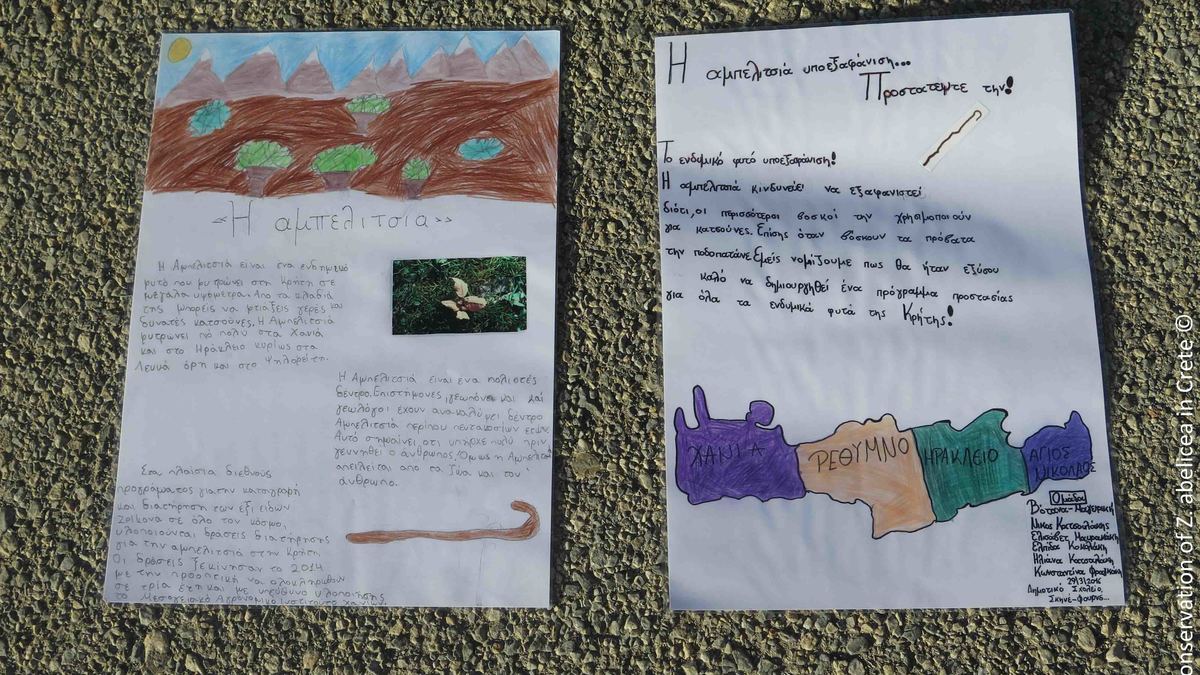 «Η αμπελιτσια»
Η Αμπελιτσιά είναι ενα ενδημικό
φυτό που φυτρώνει στη Κρήτη σε
μεγάλα υψομετρα. Απο τα κλαδιά
της μπορείς να φτιαξεις γερές και
δυνατές κατσούνες. Η Αμπελιτσιά
φυτρωνει πιο πολύ στα Χανιά
και στο Ηράκλειο κυρίως στα
Λευκά όρη και στο Ψηλορείτη.
Η Αμπελιτσιά είναι ενα
δεντρο. Επιστήμονες, γεωπόνοι και
γεωλόγοι έχουν ανακαλύψει δεντρο
Αμπελιτσιά περίπου πεντακοσίων ετών.
Αυτό σημαίνει οτι υπηρχε πολύ πριν
γεννηθεί ο άνθρωπος. Όμως η Αμπελιτσιά
απειλείται απο τα ζώα και τον
άνθρωπο.
Στα πλαίσια διεθνούς
προγράματος για την καταγραφή
και διατήρηση των εξι ειδών
Ζέλκοβα σε όλο τον κόσμο,
υλοποιουνται δράσεις διατήρησης
για την αμπελιτσιά στην Κρήτη
Οι δράσεις ξεκίνησαν το 2014
με την προοπτική να ολοκληρωθούν
σε τρία έτη και με υπεύθυνο υλοποίησης
το Μεσογειακό Αγρονομικό Ινστιτούτο Χανίων
Η αμπελιτσιά υποεξαφάνιση...
Προστατεψτε την!
Το ενδυμικό φυτό υποεξαφάνιση!
Η αμπελιτσιά κινδυνεύει να εξαφανιστεί
διότι, οι περισσότεροι βοσκοί την χρησιμοποιούν
για κατσούνες. Επίσης όταν βόσκουν τα πρόβατα
την ποδοπατάνε. Εμείς νομίζουμε πως θα ήταν εξίσου
καλό να δημιουργηθεί ένα πρόγραμμα προστασίας
για όλα τα ενδυμικά φυτά της Κρήτης!
ΧΑΝΙΑ
ΡΕΘΥΜΝΟ
ΗΡΑΚΛΕΙΟ
ΑΓΙΟΣ
ΝΙΚΟΛΑΟΣ
Ομάδα
Βότανα-Μαγειρική
Νίκος Κατσουλάκης
Ελισάβετ
Ελπίδα Κοκολάκη
Ηλιάνα
Κωνσταντίνα
29/3/2016
Δημοτικό Σχολείο,
Σκηνέ-Φουρνέ...
onservation of Z. abelicea in Crete ©